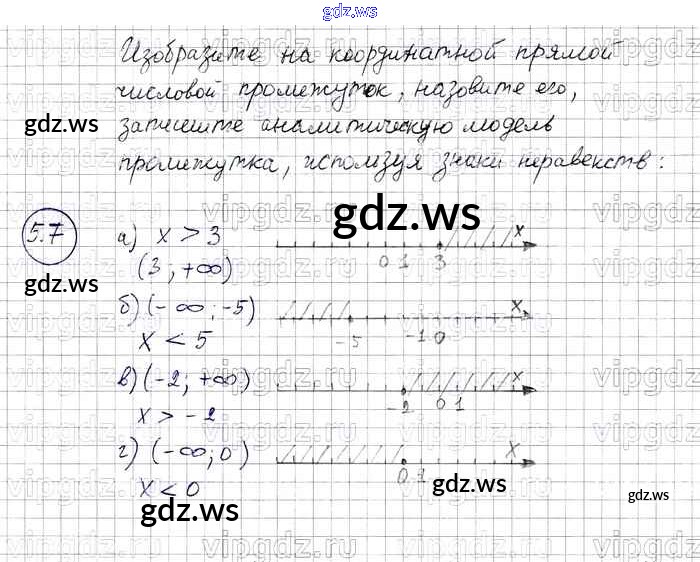 gdz.ws
Изобразите на координатной прямой
числовой промежуток, назовите его,
запишите аналитическую модель
промежутка, используя знаки неравенств:
gdz.ws
gdz.ws
5.7
а) x > 3
(3; +∞)
0 1 3 x
gdz.ws
б) (-∞; -5)
x < 5
-5 -1 0 x
в) (-2; +∞)
x > -2
-2 0 1 x
г) (-∞; 0)
x < 0
0 1 x
gdz.ws
gdz.ws
gdz.ws
vipgdz.ru